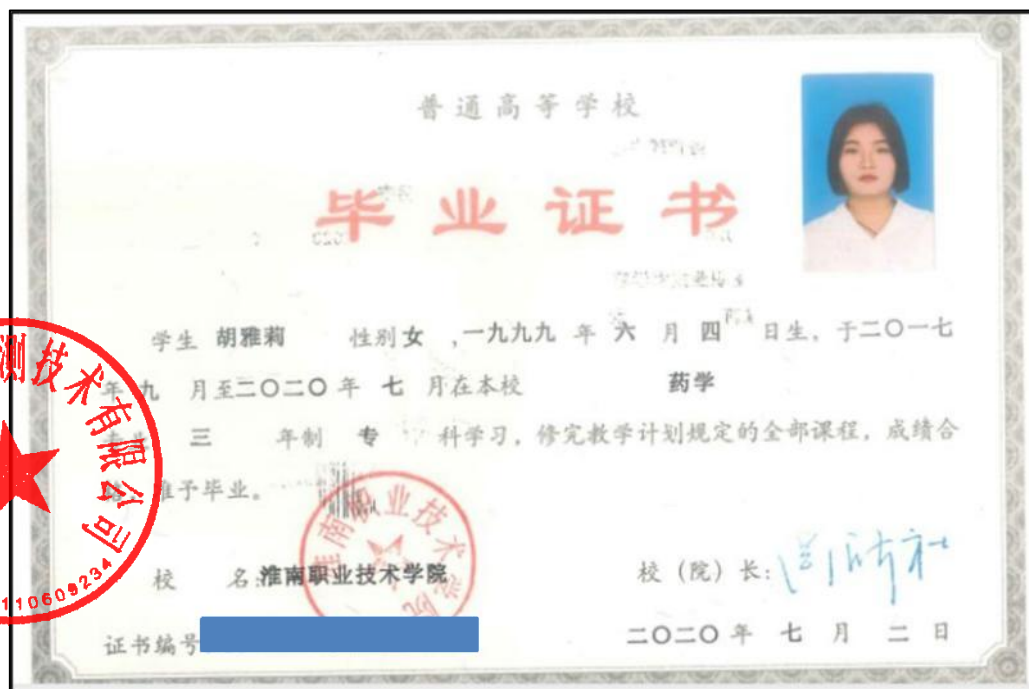 普通高等学校
毕业证书
学生 胡雅莉 性别 女 ,一九九九 年 六 月 四 日生, 于二〇一七
年 九 月至二〇二〇年 七 月在本校 药学
三 年制 专 科学习, 修完教学计划规定的全部课程, 成绩合
准予毕业。
校 名:淮南职业技术学院
校 (院) 长:
证书编号
二〇二〇年 七 月 二 日
淮南职业技术学院
测技术有限公司
110609234